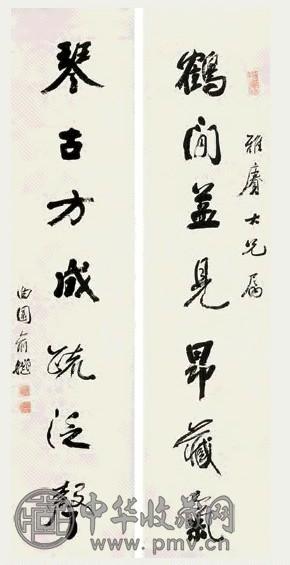 雅賡大兄屬
鶴閒益見昂藏氣
琴古方成疏泛聲
曲園俞樾
中华收藏网
www.pmv.cn